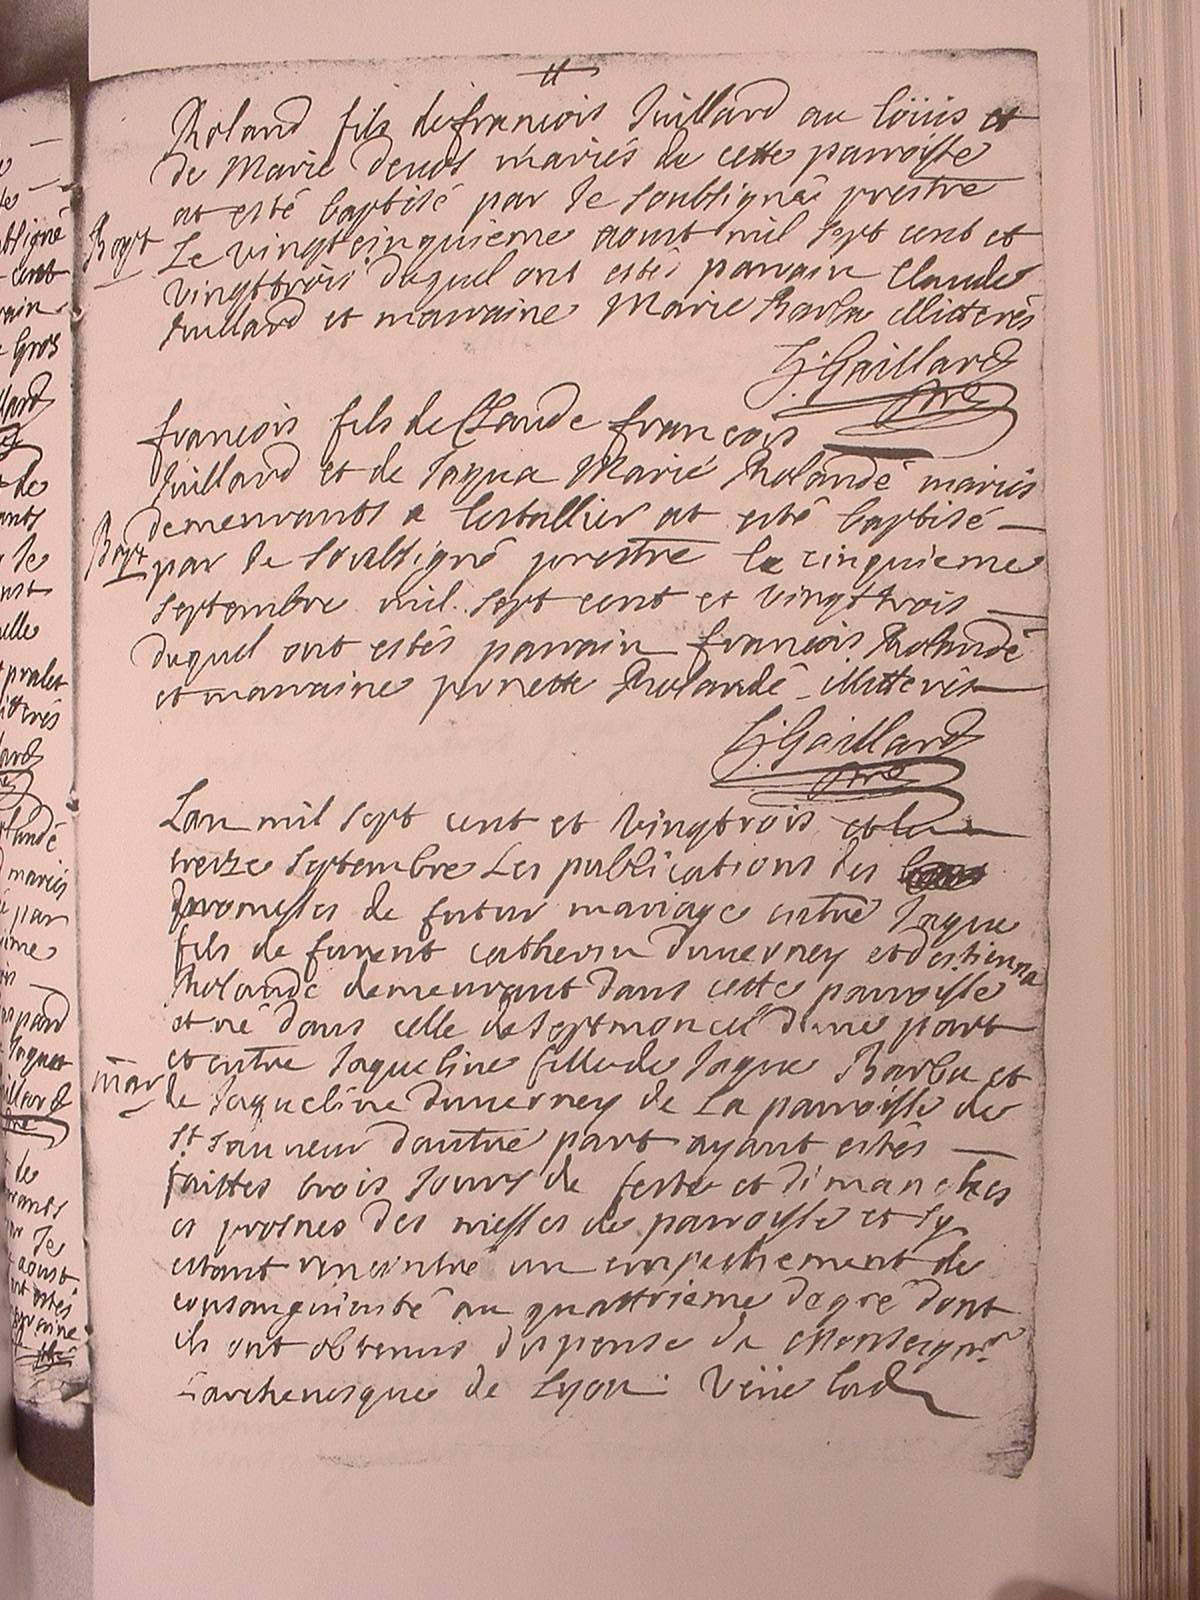 Roland fils de françois Juillard au loüis et
de Marie demds mariés de cette parroisse
at esté baptisé par Je soubsigné prestre
Bapt Le vingtcinquieme aoust mil sept cent et
vingttrois duquel ont estés parrain Claude
Juillard et marraine Marie Barbe illitterés
Gaillard
pre
françois fils de Claude françois
Juillard et de Jaqua Marie Rolandé mariés
demeurants a at esté baptisé
Bapt par Je Soubsigné prestre le cinquieme
septembre mil sept cent et vingttrois
duquel ont estés parrain françois Rolandé
et marraine perrette Rolandé illitterés
Gaillard
pre
Lan mil sept cent et vingtrois et le
treize septembre Les publications des
promesses de futur mariage entre Jaque
fils de furent catherin duuerney et destienna
Rolande demeurant dans cette parroisse
et né dans celle de Septmoncel dune part
et entre Jaqueline fille de Jaque Barbe et
mar de Jaqueline duuerney de La parroisse de
St sauueur dautre part ayant estés
faittes trois Jours de feste et dimanches
es prosnes des messes de parroisse et sy
estant rencintré un empechement de
consanguinité au quattrieme degré dont
ils ont obtenus dispense de Monseignr
Larcheuesque de Lyon Vëue